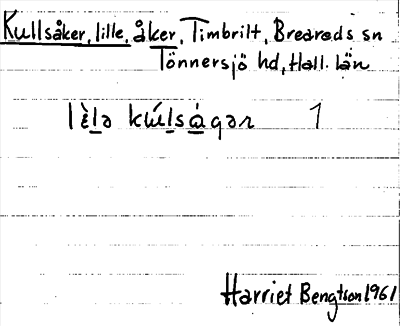 Kullsåker, lille, åker, Timbrilt, Breareds sn
Tönnersjö hd, Hall. län
lèlə kúlsågər 1
Harriet Bengtson 1961